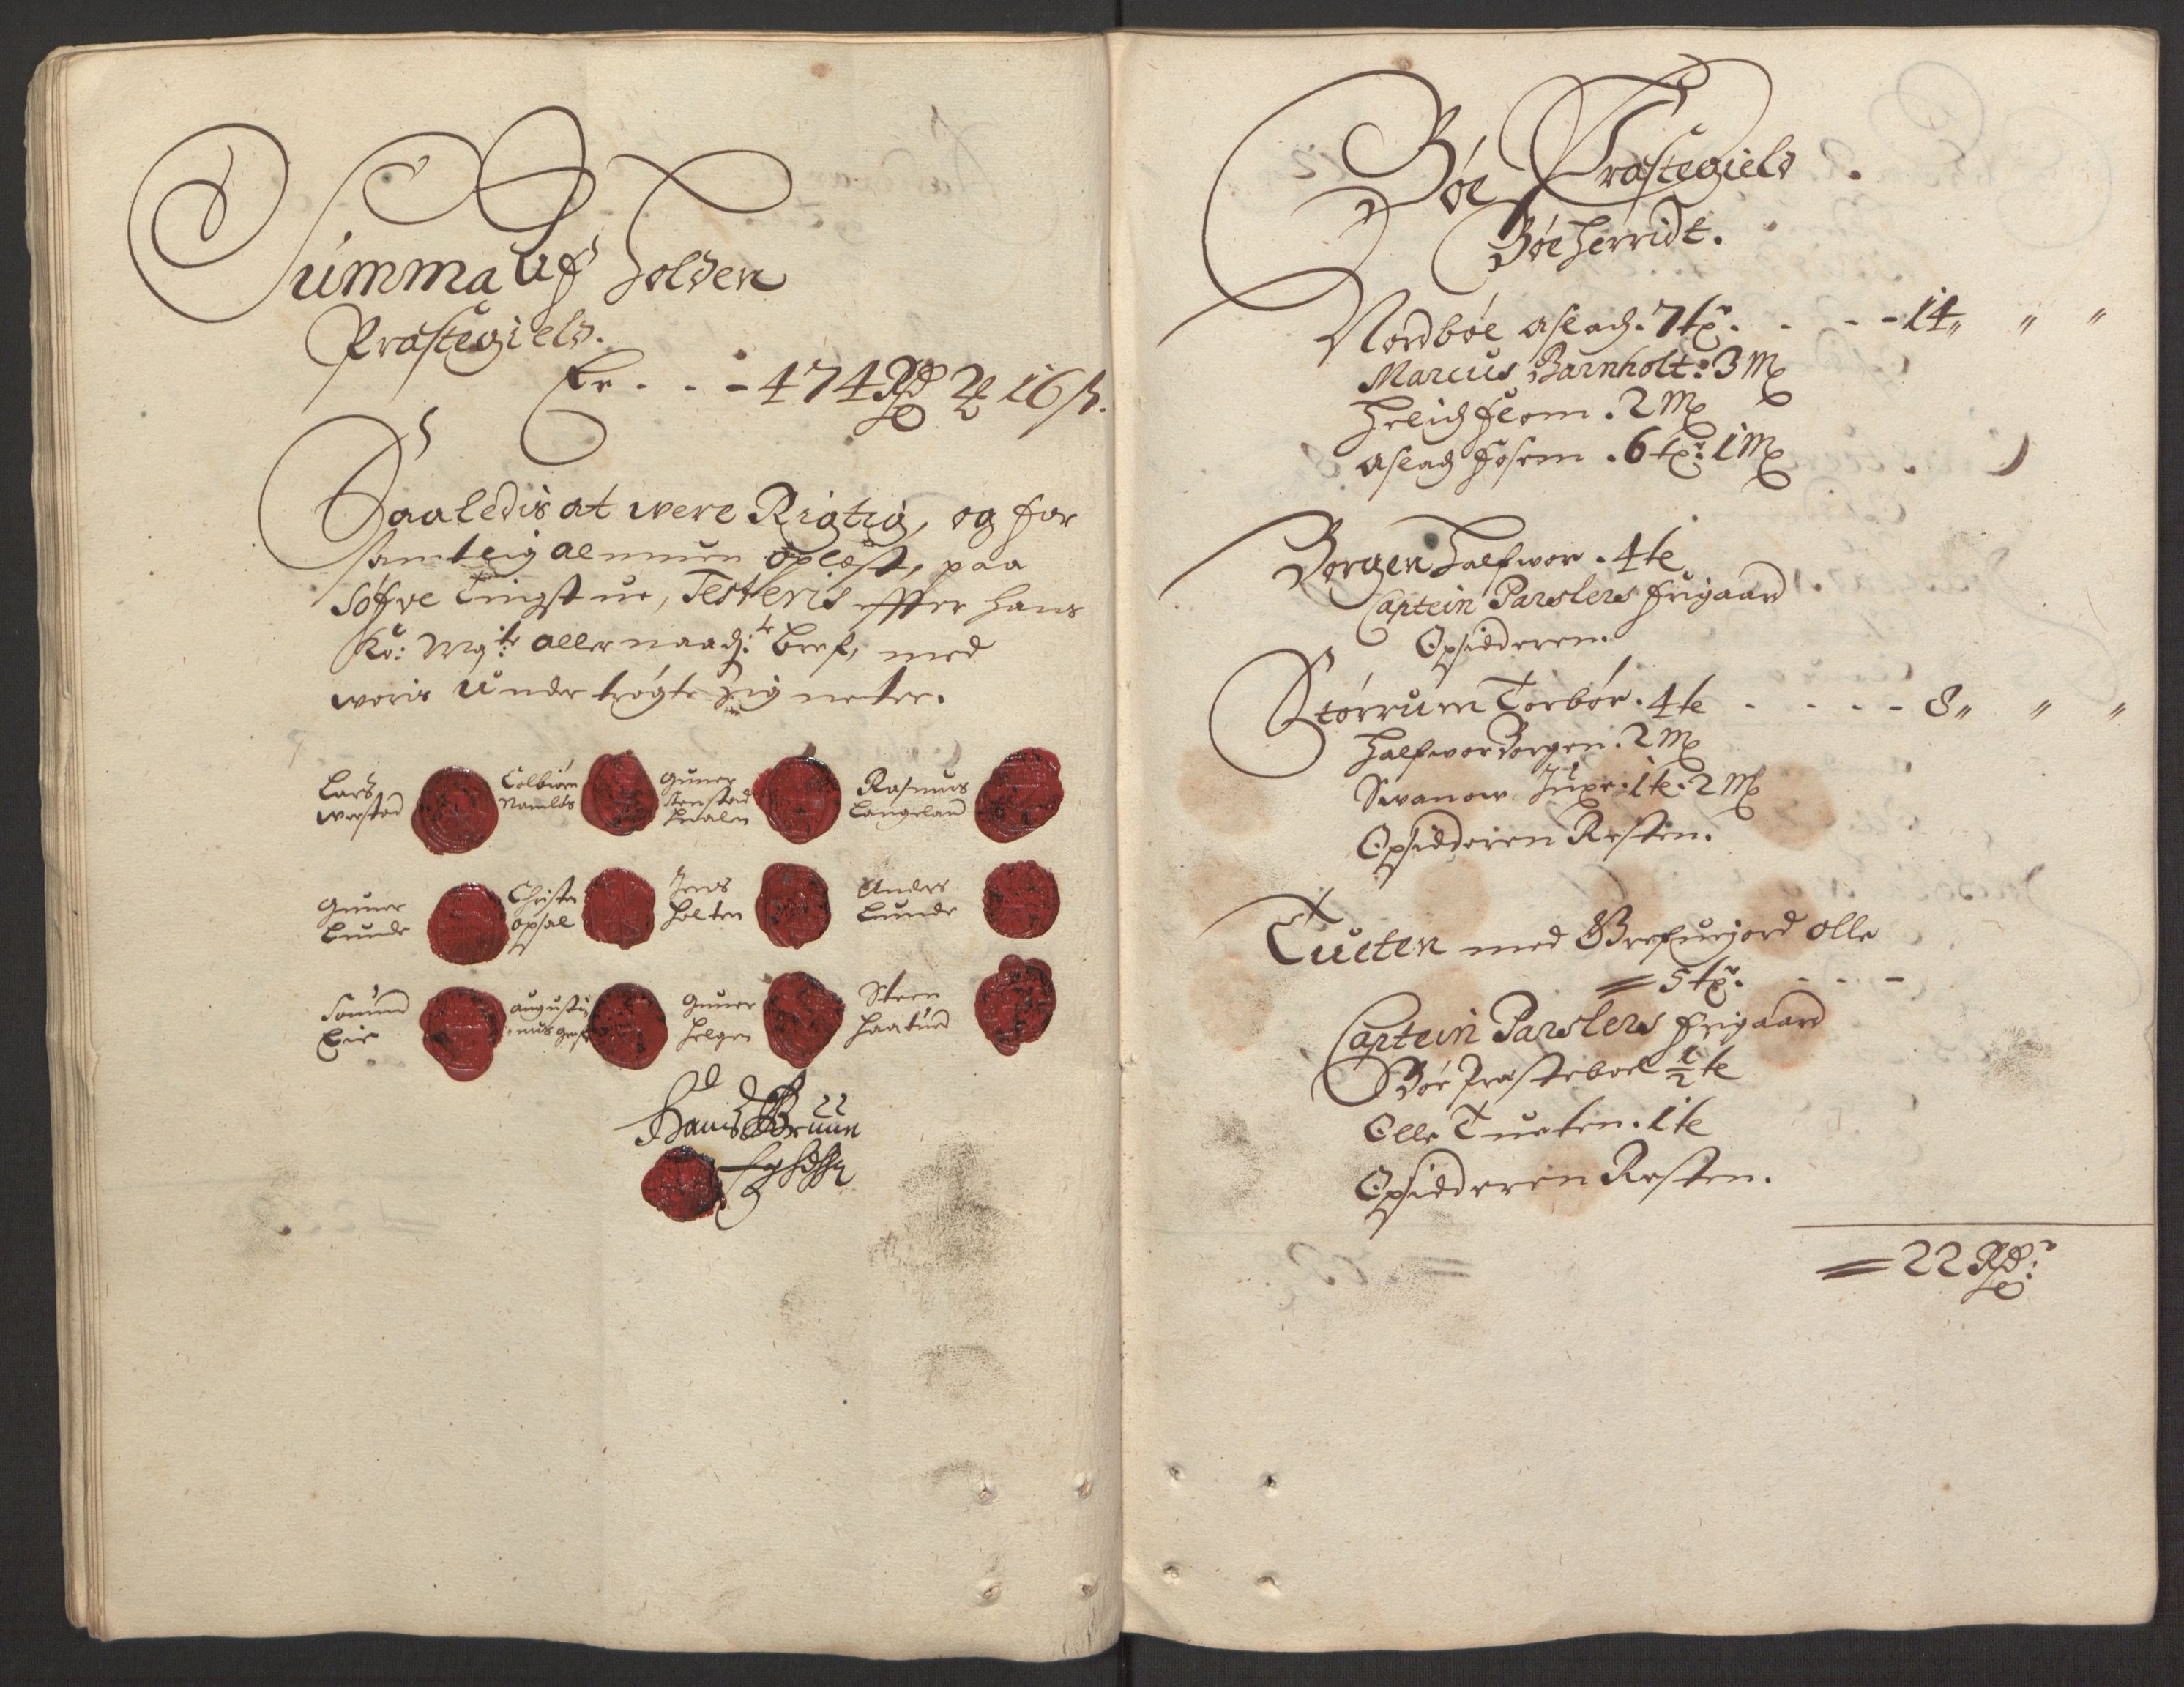 Summa Uf Holden
Præstegield.
Er - - - 474 Rd 2 1 16 s.
Saaledis at were Rigtig, og for
samtlig almuen oplæst, paa
Søfve Tingstue, Testeris effter hans
Ko: Maÿ:ts allernaad:te bref, med
woris Under trøgte Zigneter.
Lars
Werstad
Colbiørn
Namløs
Guner
Stenstad
Hvalen
Rasmus
Langeland
Guner
Lunde
Christen
Opsal
Jens
Holten
Anders
Lunde
Sønund
Eie
Augusti
nus
Guner
Helgen
Steen
Haatued
Hans Bruun
Bøe Præstegield.
Bøe Herridt.
Nordbøe Aslag. 7 tr. - - - 14 " " "
Marcus Barnholt: 3 M
Helig Flom. 2 M
Aslag Fosem. 6 tr: 1 M
Borgen Halfwor. 4 te
Captein Parslers frigaard
Opsidderen.
Størrum Torbør. 4 te - - - - 8 " " "
Halfwor Borgen. 2 M
Swanow Jupe. 1 te. 2 M
Opsidderen Resten.
Tueten med Grefuejord Olle
= 5 tr. - - - -
Captein Parslers frigaard
Bøe Præsteboel 1/2 te
Olle Tueten. 1 te
Opsidderen Resten.
= 22 Rdr: